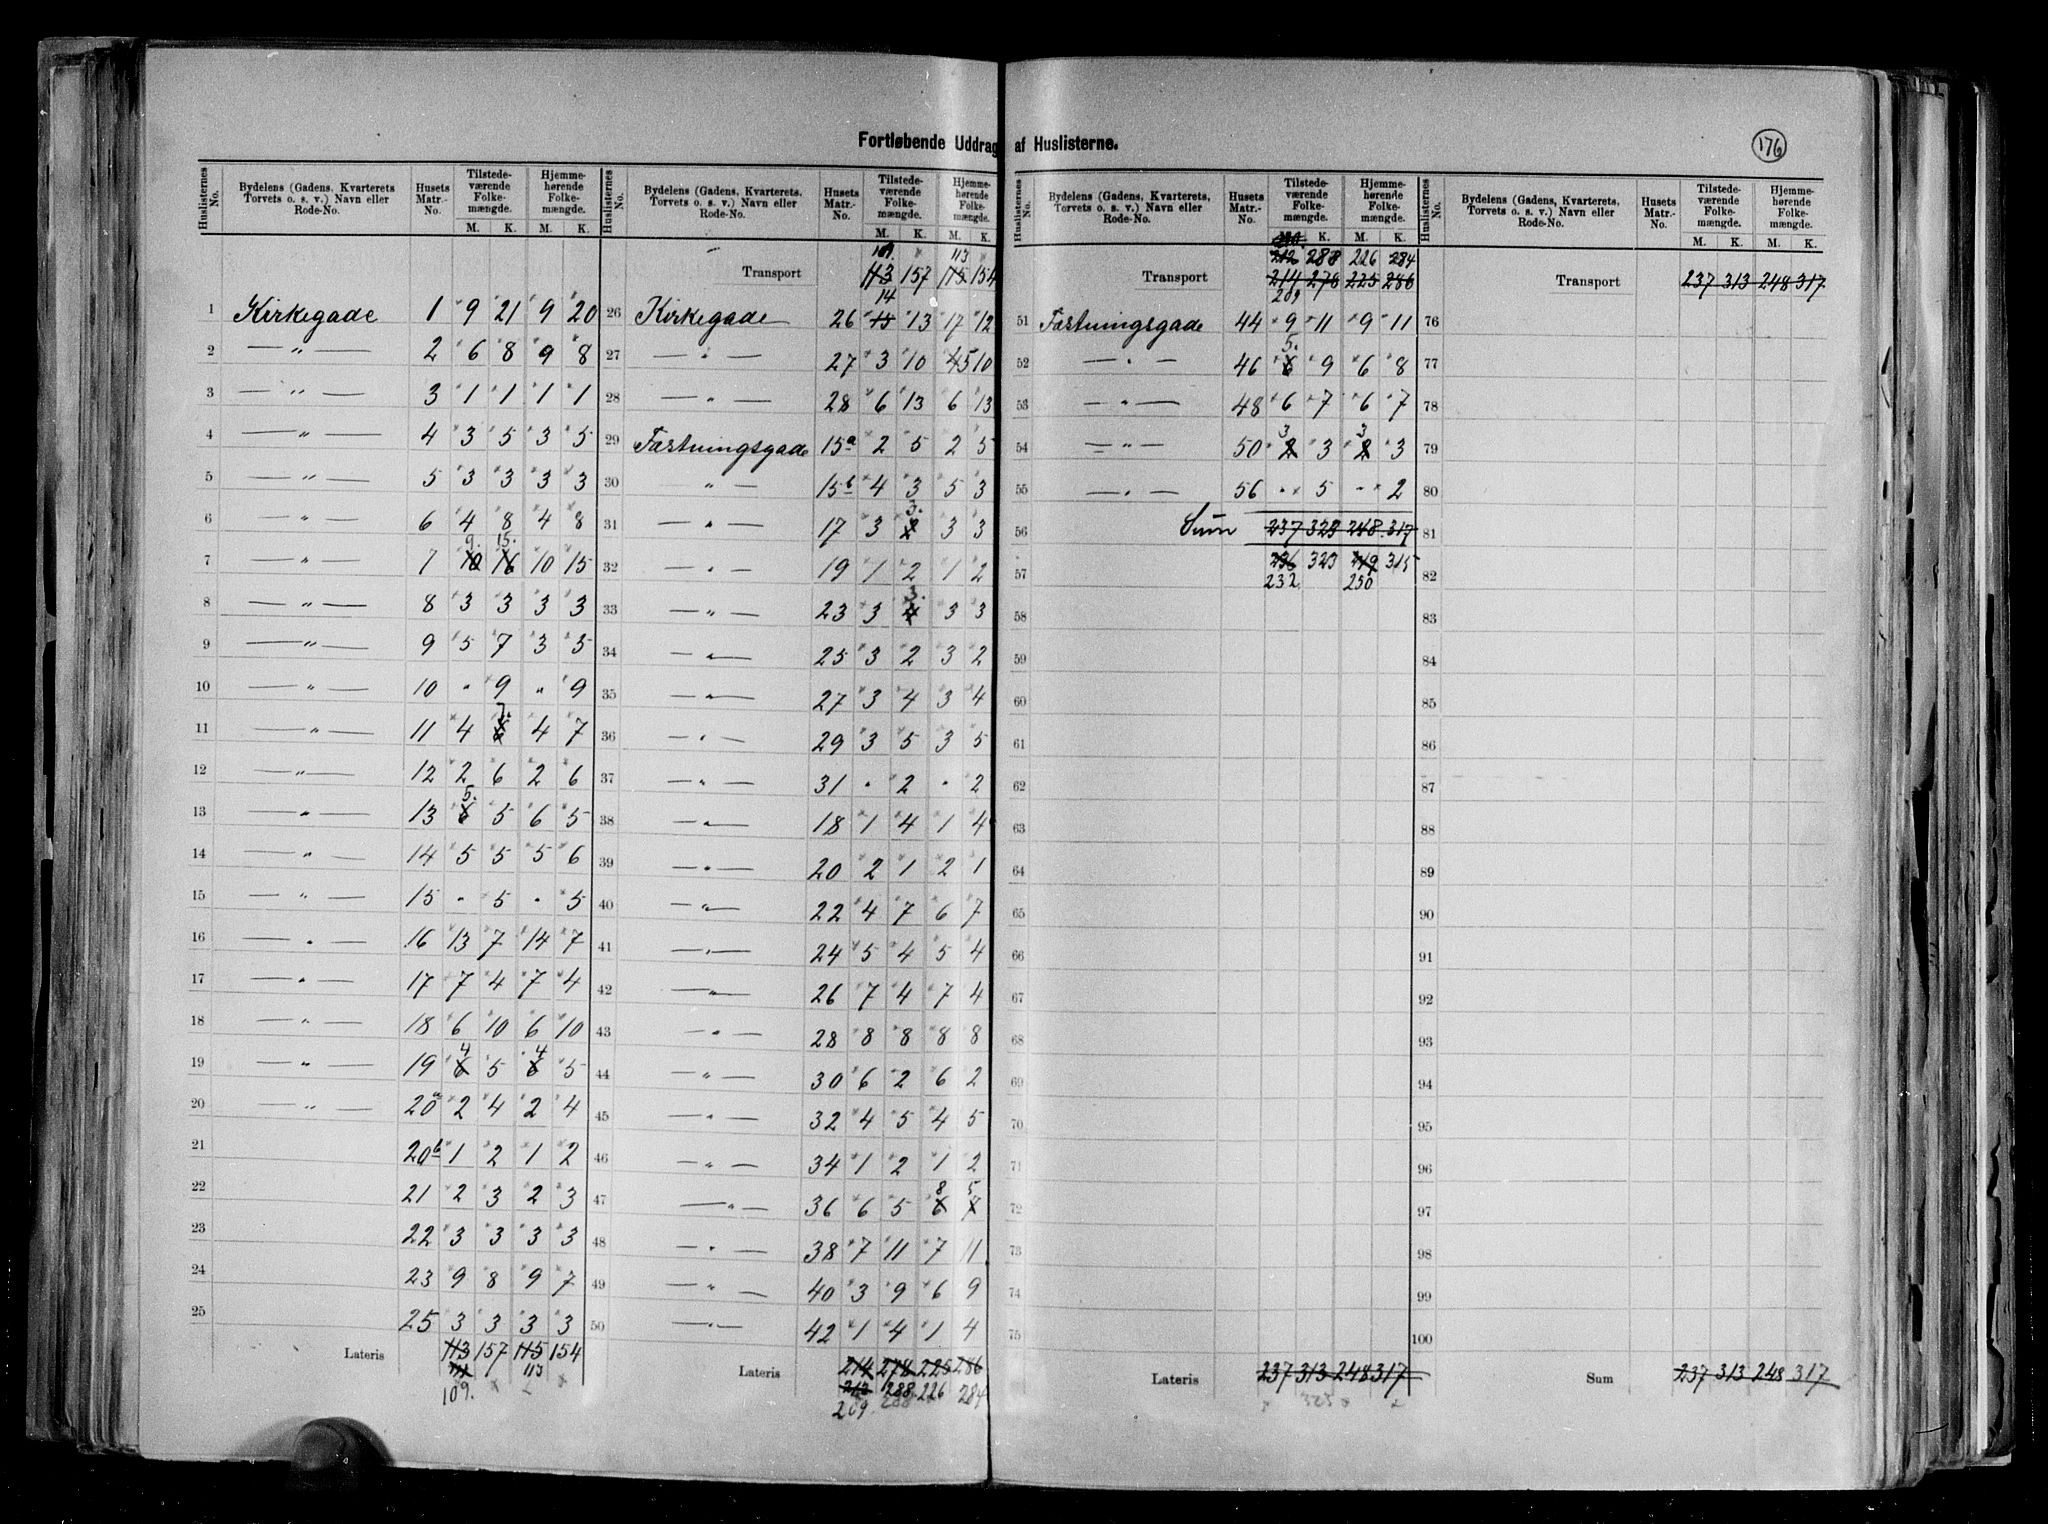 Fortløbende Uddrag af Huslisterne.
176
Huslisternes No. | Bydelens (Gadens, Kvarterets Torvets o. s. v.) Navn eller Rode-No. | Husets Matr.-No. | Tilstedeværende Folkemængde. M. K. | Hjemmehørende Folkemængde. M. K.
1 Kirkegade 1 9 21 9 20
2 — " — 2 6 8 9 8
3 — " — 3 1 1 1 1
4 — " — 4 3 5 3 5
5 — " — 5 3 3 3 3
6 — " — 6 4 8 4 8
7 — " — 7 10 9. 16 15. 10 15
8 — " — 8 3 3 3 3
9 — " — 9 5 7 3 5
10 — " — 10 " 9 " 9
11 — " — 11 4 6 7. 4 7
12 — " — 12 2 6 2 6
13 — " — 13 6 5. 5 6 5
14 — " — 14 5 5 5 6
15 — " — 15 " 5 " 5
16 — " — 16 13 7 14 7
17 — " — 17 7 4 7 4
18 — " — 18 6 10 6 10
19 — " — 19 6 4 5 6 4 5
20 — " — 20a 2 4 2 4
21 20b 1 2 1 2
22 21 2 3 2 3
23 22 3 3 3 3
24 23 9 8 9 7
25 25 3 3 3 3
Lateris 113 157 115 154
111 113
109.
Huslisternes No. | Bydelens (Gadens, Kvarterets, Torvets o. s. v.) Navn eller Rode-No. | Husets Matr.-No. | Tilstedeværende Folkemængde. M. K. | Hjemmehørende Folkemængde. M. K.
109. 113
Transport 113 157 115 154
26 Kirkegade 26 15 14 13 17 12
27 — " — 27 3 10 4 5 10
28 — " — 28 6 13 6 13
29 Fæstningsgade 15a 2 5 2 5
30 — " — 15b 4 3 5 3
31 — " — 17 3 2 3. 3 3
32 — " — 19 1 2 1 2
33 — " — 23 3 4 3. 3 3
34 — " — 25 3 2 3 2
35 — " — 27 3 4 3 4
36 — " — 29 3 5 3 5
37 — " — 31 " 2 " 2
38 — " — 18 1 4 1 4
39 — " — 20 2 1 2 1
40 — " — 22 4 7 6 7
41 — " — 24 5 4 5 4
42 — " — 26 7 4 7 4
43 — " — 28 8 8 8 8
44 — " — 30 6 2 6 2
45 — " — 32 4 5 4 5
46 — " — 34 1 2 1 2
47 — " — 36 6 5 6 8 8 5
48 — " — 38 7 11 7 11
49 — " — 40 3 9 6 9
50 — " — 42 1 4 1 4
Lateris 214 278 225 286
212 288 226 284
209. 288
Huslisternes No. | Bydelens (Gadens, Kvarterets, Torvets o. s. v.) Navn eller Rode-No. | Husets Matr.-No. | Tilstedeværende Folkemængde. M. K. | Hjemmehørende Folkemængde. M. K.
212 288 226 284
Transport 214 278 225 286
209
51 Fæstningsgade 44 9 11 9 11
52 — " — 46 6 5. 9 6 8
53 — " — 48 6 7 6 7
54 — " — 50 2 3 3 2 3 3
55 — " — 56 " 5 " 2
56 Sum 237 323 248 317
57 236 323 249 315
232 250
58
59
60
61
62
63
64
65
66
67
68
69
70
71
72
73
74
75
Lateris 237 313 248 317
323
Huslisternes No. | Bydelens (Gadens, Kvarterets, Torvets o. s. v.) Navn eller Rode-No. | Husets Matr.-No. | Tilstedeværende Folkemængde. M. K. | Hjemmehørende Folkemængde. M. K.
Transport 237 313 248 317
76
77
78
79
80
81
82
83
84
85
86
87
88
89
90
91
92
93
94
95
96
97
98
99
100
Sum 237 313 248 317